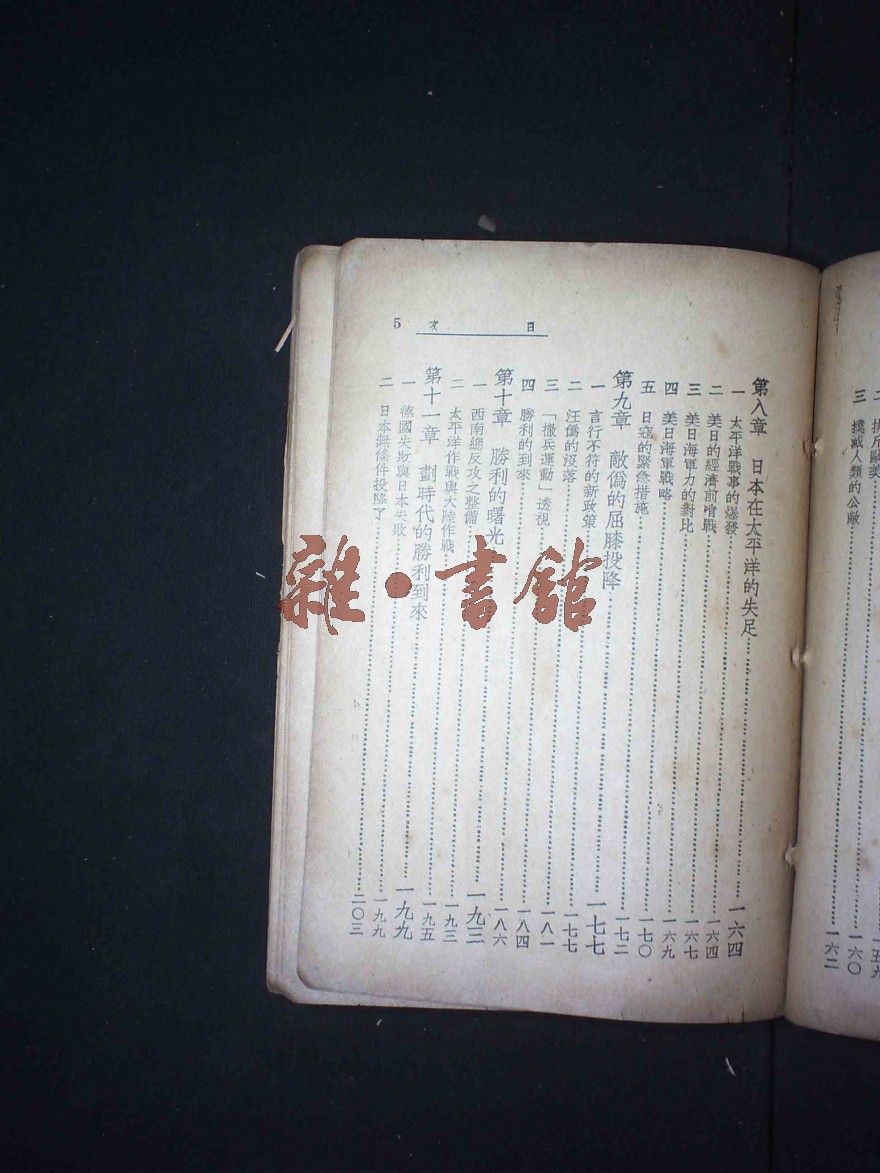 二 ……一六〇
三 撲滅人類的公敵……一六二
目 次 5
第八章 日本在太平洋的失足……一六四
一 太平洋戰事的爆發……一六四
二 美日的經濟前哨戰……一六七
三 美日海軍力的對比……一六九
四 美日海軍戰略……一七〇
五 日寇的緊急措施……一七二
第九章 敵僞的屈膝投降……一七七
一 言行不符的新政策……一七七
二 汪僞的没落……一八一
三 「撤兵運動」透視……一八四
四 勝利的到來……一八六
第十章 勝利的曙光……一九三
一 西南總反攻之整備……一九三
二 太平洋作戰與大陸作戰……一九五
第十一章 劃時代的勝利到來……一九九
一 德國失敗與日本失敗……一九九
二 日本無條件投降了……二〇三
雜·書館